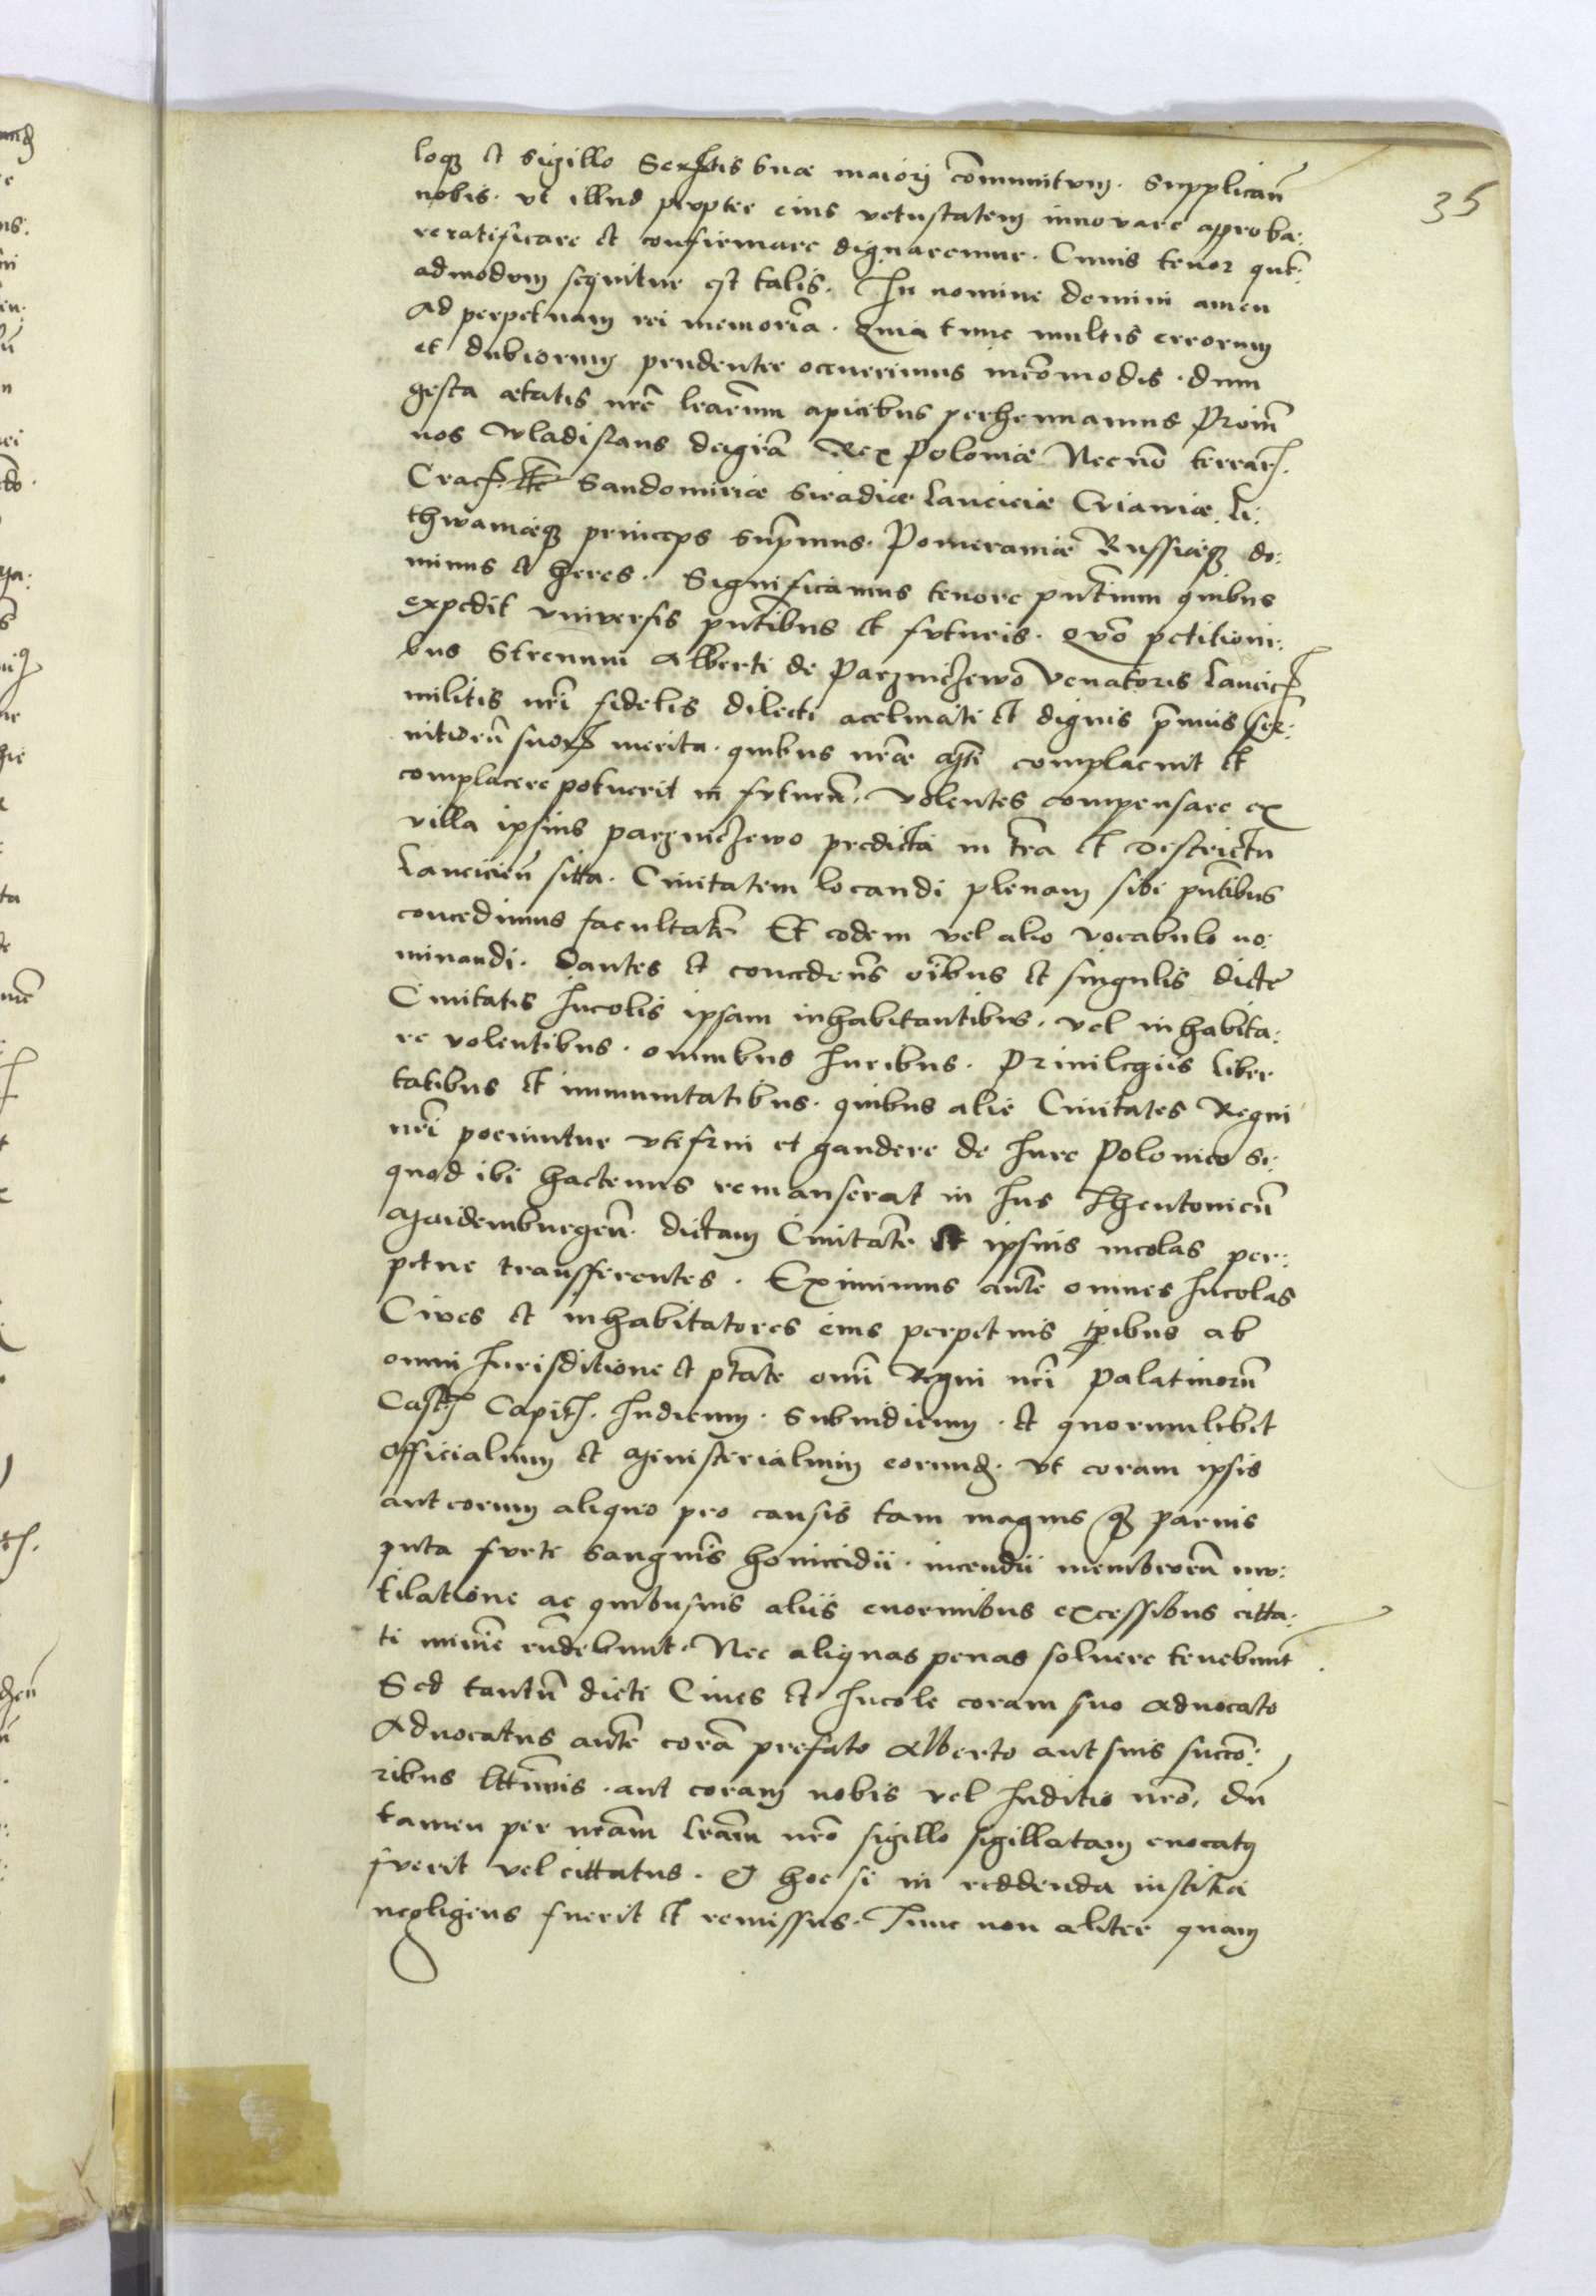 35
loq₃ et sigillo Serᵗⁱˢ suæ maiori cōmunitum. Supplicañ
nobis. vt illud propter eius vetustatem innovare approba:
re ratificare et confirmare dignaremur. Cuius tenor que:
admodum sequitur est talis. In nomine domini amen
Ad perpetuam rei memoriā. Quia tunc multis errorum
et dubiorum prudenter occurrimus incōmodis. dum
gesta ætatis nr̄e lrārum apicibus perhennamus Proin̄
nos Wladislaus dei grā Rex Poloniæ Necnō terrarꝫ.
Cracꝫ Sandomiriæ Siradiæ Lanciciæ Cuiawiæ. Li:
thwaniæq₃ princeps supr̄mus. Pomeraniæ Russiæq₃ do:
minus et heres. Significamus tenore pn̄tium quibus
expedit vniversis pn̄tibus et futuris. Quō petitioni:
bus Strenuui Alberti de Parzniczewo Venatoris Lancicꝫ
militis nr̄i fidelis dilecti aclināti et dignis p̄miis ser:
uitiorū suorꝫ merita. quibus nr̄æ complacuit et
complacere potuerit in futurū. Volentes compensare ex
villa ipsius parzniczewo predicta in tr̄a et Destrictu
Lancicieñ sitta. Ciuitatem locandi plenam sibi pn̄tibus
concedimus facultatē Et eodem vel alio vocabulo no:
minandi. Dantes et concedeñs oībus et singulis dicte
Ciuitatis Incolis ipsam inhabitantibus. vel inhabita:
re volentibus. omnibus Iuribus. Priuilegiis liber
tatibus et immunitatibus. quibus alie Ciuitates Regni
nr̄i pociuntur vti frui et gaudere de Iure Polonico si:
quod ibi hactenus remanserat in Ius Theutonicū
Maidemburgeñ. dictam Ciuitatē et ipsius incolas per:
petue transferentes. Eximimus autē omnes Incolas
Cives et inhabitatores eius perpetuis tp̄ibus ab
omni Iurisditione et ptāte omī Regni nr̄i Palatinorū
Castꝫ Capitꝫ. Iudicum. Subiudicum. et quorumlibet
officialium et Ministerialium eorundꝫ. vt coram ipsis
aut eorum aliquo pro causis tam magnis q̄ꝫ parvis
puta furti sanguīs homicidii. incendii membrorū mu:
tilatione ac quibusuis aliis enormibus excessibus citta:
ti minīe rūdebunt. Nec aliquas penas soluere tenebunt̄.
Sed tantū dicti Ciues et Incole coram suo advocato
Advocatus autē corā prefato Alberto aut suis succō:
ribus lttīmis. aut coram nobis vel Iuditio nr̄o. dū
tamen per nrām lrām nr̄o sigillo sigillatam euocatꝰ
fuerit vel cittatus. Et hoc si in reddenda iustitia
negligens fuerit et remissus. Tunc non aliter quam